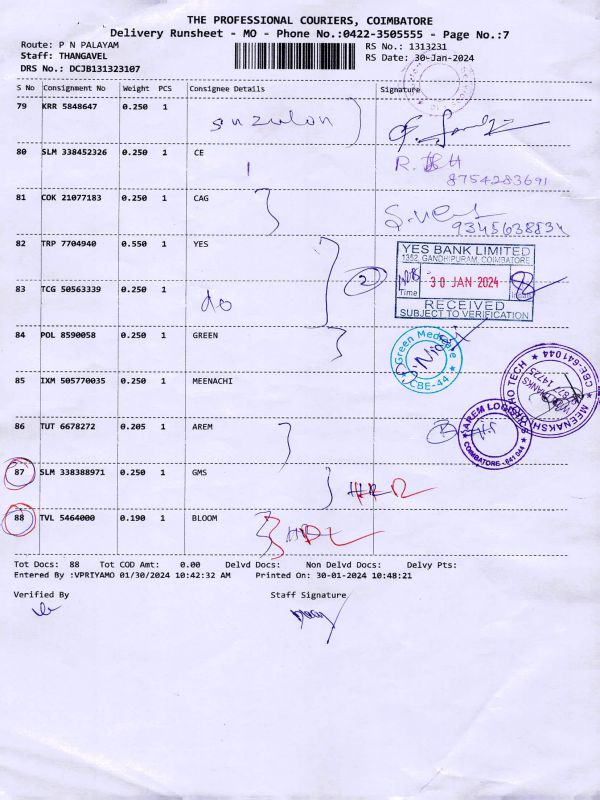 THE PROFESSIONAL COURIERS, COIMBATORE
Delivery Runsheet - MO - Phone No.:0422-3505555 - Page No.:7
Route: P N PALAYAM
RS No.: 1313231
Staff: THANGAVEL
RS Date: 30-Jan-2024
DRS No.: DCJB131323107
S No Consignment No Weight PCS Consignee Details Signature
79 KRR 5848647 0.250 1
80 SLM 338452326 0.250 1 CE
8754283691
81 COK 21077183 0.250 1 CAG
9345638834
82 TRP 7704940 0.550 1 YES
YES BANK LIMITED
1352, GANDHIPURAM, COIMBATORE
30 JAN 2024
Time
RECEIVED
SUBJECT TO VERIFICATION
83 TCG 50563339 0.250 1 do
2
84 POL 8590058 0.250 1 GREEN
Green Medicare
CBE-44
85 IXM 505770035 0.250 1 MEENACHI
CBE-641044
86 TUT 6678272 0.205 1 AREM
AREM LOGISTICS
COIMBATORE -641 044
87 SLM 338388971 0.250 1 GMS
88 TVL 5464000 0.190 1 BLOOM
Tot Docs: 88 Tot COD Amt: 0.00 Delvd Docs: Non Delvd Docs: Delvy Pts:
Entered By :VPRIYAMO 01/30/2024 10:42:32 AM Printed On: 30-01-2024 10:48:21
Verified By Staff Signature